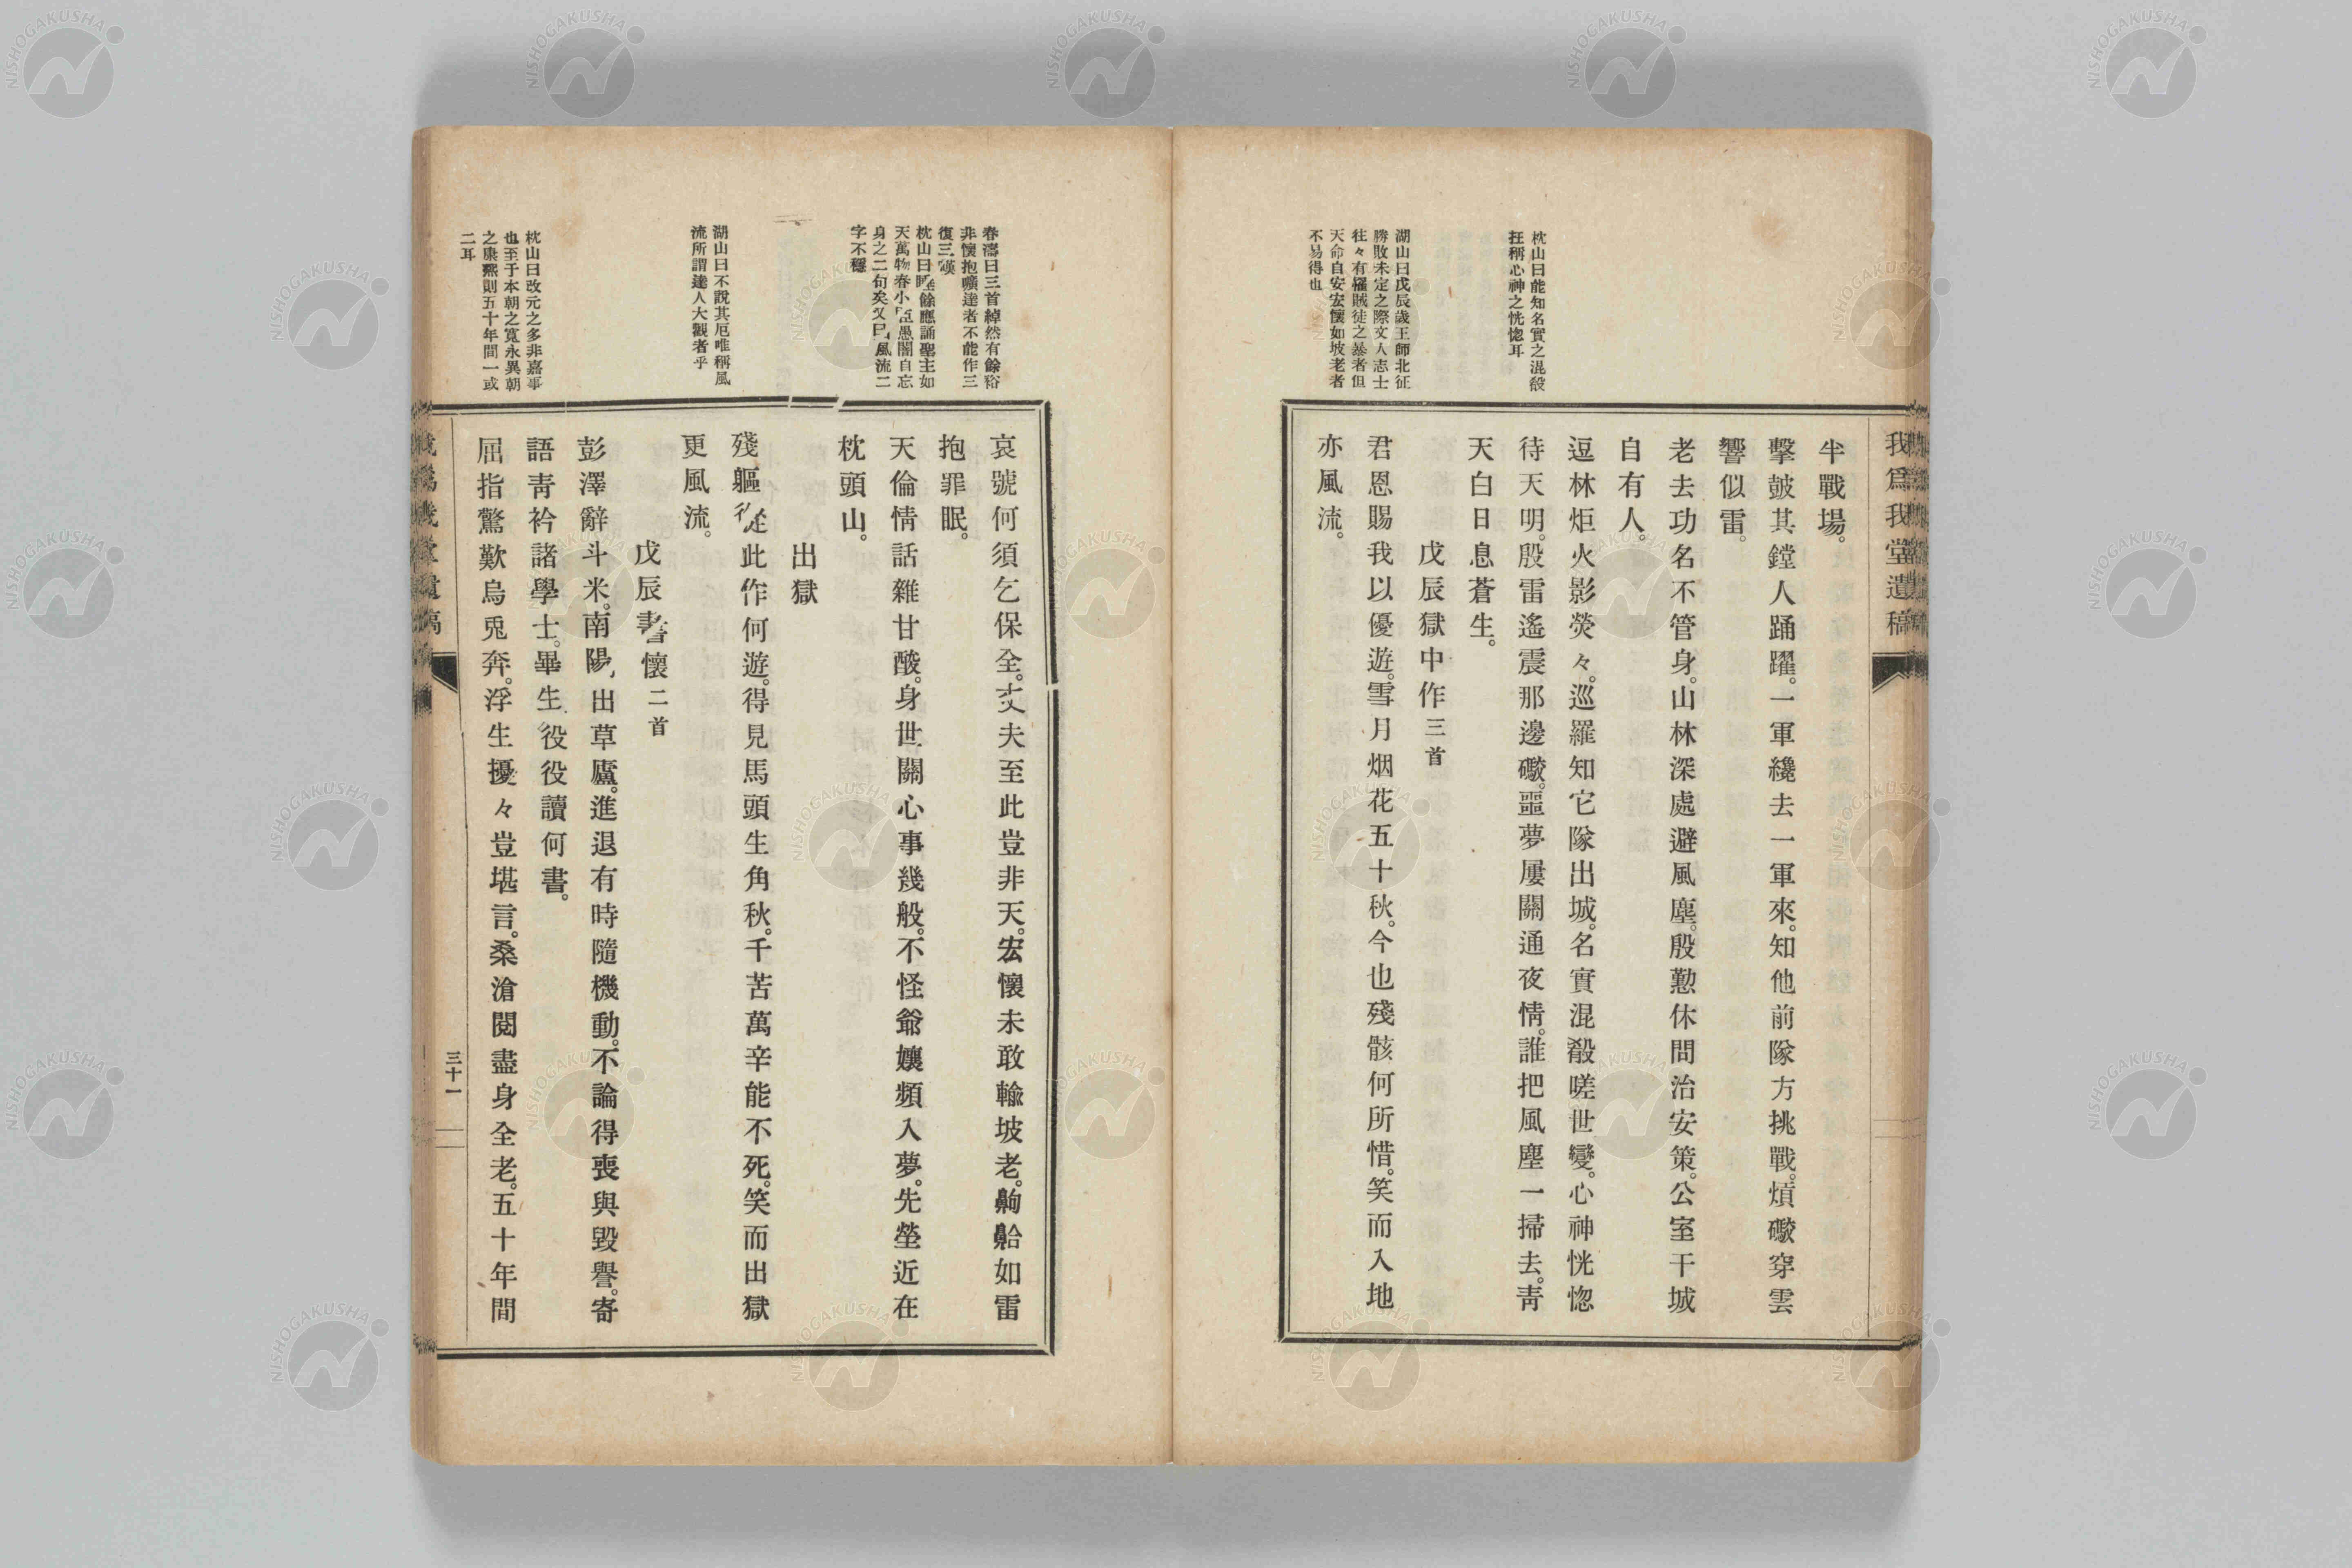 我爲我堂遺稿
枕山曰能知名實之混殽
狂稱心神之恍惚耳
湖山曰戊辰歲王師北征
勝敗未定之際文人志士
往々有罹賊徒之暴者但
天命自安宏懷如坡老者
不易得也
半戰場。
擊皷其鏜人踊躍。一軍纔去一軍來。知他前隊方挑戰。煩礮穿雲
響似雷。
老去功名不管身。山林深處避風塵。殷懃休問治安策。公室干城
自有人。
逗林炬火影熒々。巡羅知它隊出城。名實混殽嗟世變。心神恍惚
待天明。殷雷遙震那邊礮。噩夢屢關通夜情。誰把風塵一掃去。靑
天白日息蒼生。
戊辰獄中作三首
君恩賜我以優遊。雪月烟花五十秋。今也殘骸何所惜。笑而入地
亦風流。
春濤曰三首綽然有餘裕
非懷抱曠達者不能作三
復三嘆
枕山曰睡餘應誦聖主如
天萬物春小臣愚闇自忘
身之二句矣又曰風流二
字不穩
湖山曰不說其厄唯稱風
流所謂達人大觀者乎
枕山曰改元之多非嘉事
也至于本朝之寬永異朝
之康熙則五十年間一或
二耳
哀號何須乞保全。丈夫至此豈非天。宏懷未敢輸坡老。齁齁如雷
抱罪眠。
天倫情話雜甘酸。身世關心事幾般。不怪爺孃頻入夢。先塋近在
枕頭山。
出獄
殘軀從此作何遊。得見馬頭生角秋。千苦萬辛能不死。笑而出獄
更風流。
戊辰書懷二首
彭澤辭斗米。南陽出草廬。進退有時隨機動。不論得喪與毀譽。寄
語靑衿諸學士。畢生役役讀何書。
屈指驚歎烏兎奔。浮生擾々豈堪言。桑滄閱盡身全老。五十年間
三十一